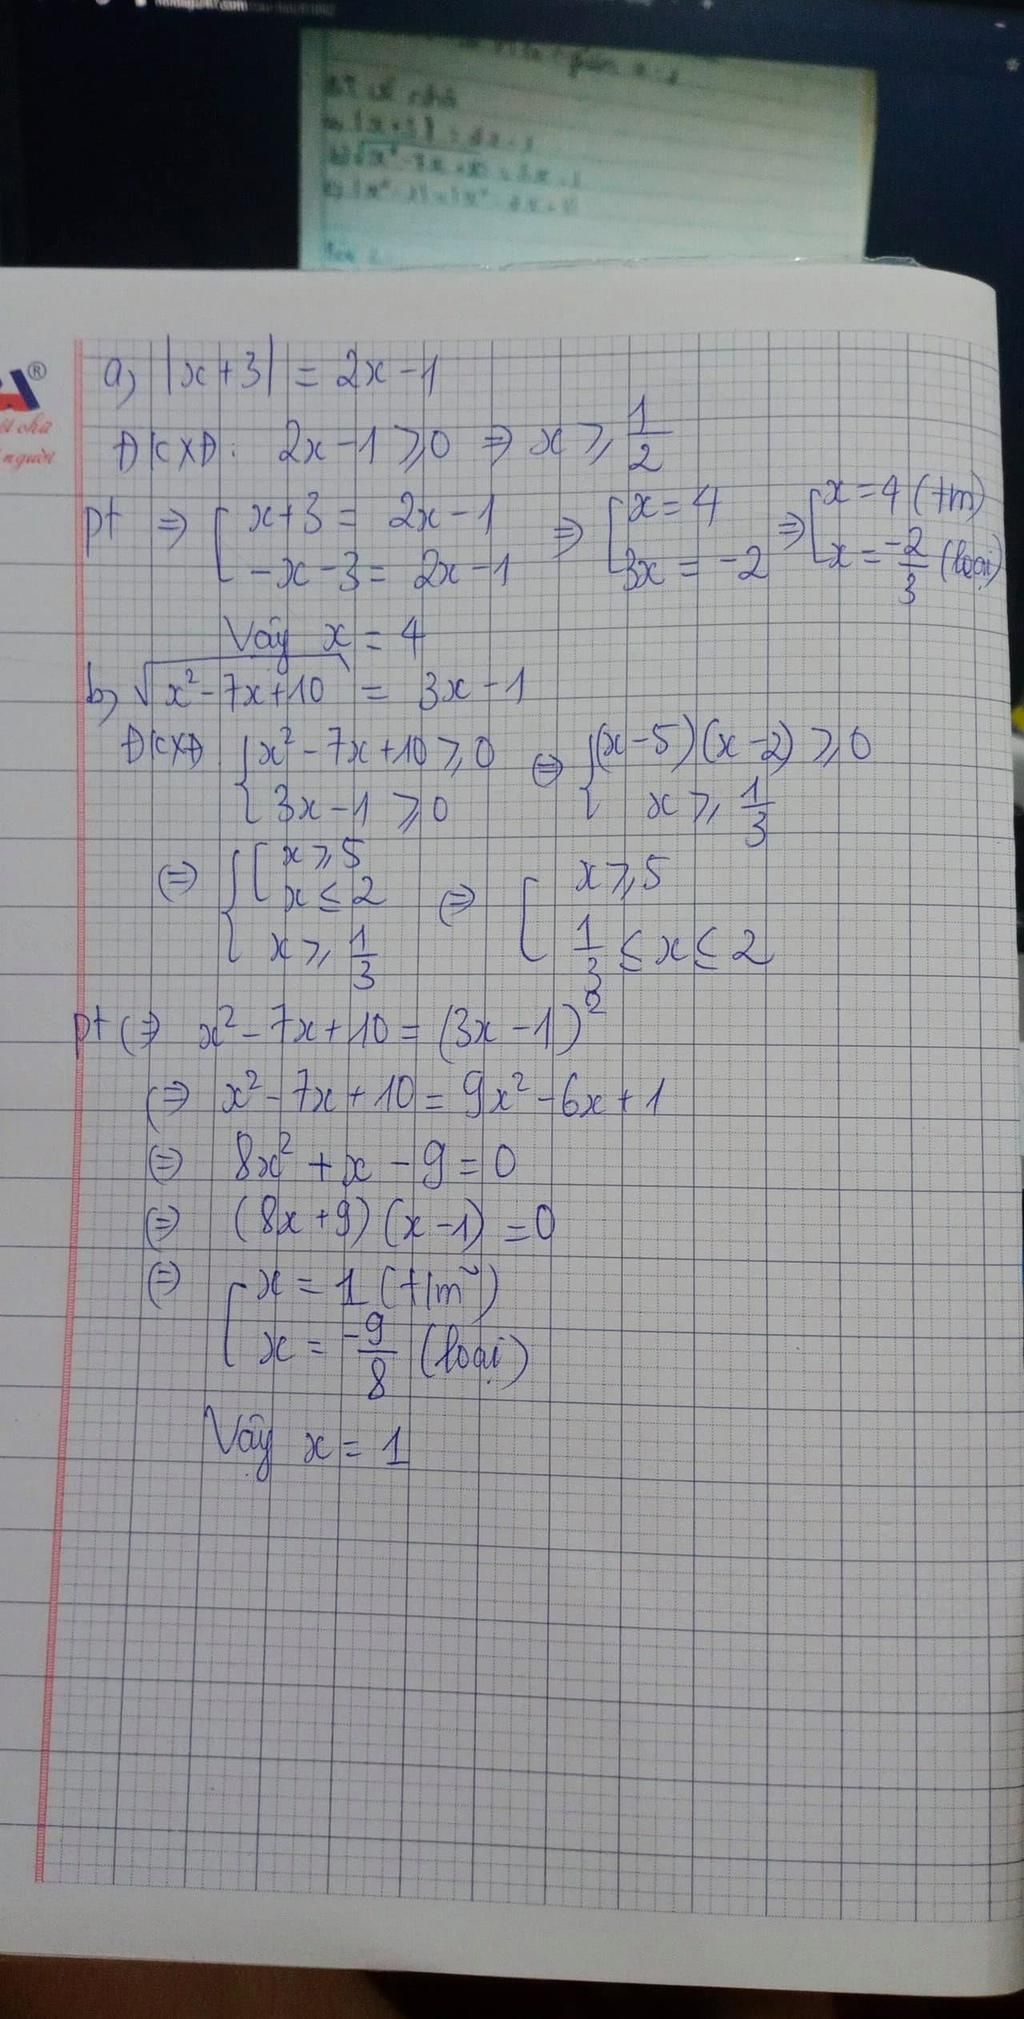 BT về nhà
a, |x+3| = 2x-1
b, √x²-7x+10 = 3x-1
®
a, |x+3| = 2x-1
ĐKXĐ: 2x-1 ⩾ 0 ⇒ x ⩾ 1/2
pt ⇒ [ x+3 = 2x-1 ; -x-3 = 2x-1 ⇒ [ x = 4 ; 3x = -2 ⇒ [ x = 4 (tm) ; x = -2/3 (loại)
Vậy x = 4
b, √x²-7x+10 = 3x-1
ĐKXĐ { x²-7x+10 ⩾ 0 ; 3x-1 ⩾ 0 ⇔ { (x-5)(x-2) ⩾ 0 ; x ⩾ 1/3
⇔ { [ x ⩾ 5 ; x ≤ 2 ; x ⩾ 1/3 ⇔ [ x ⩾ 5 ; 1/3 ≤ x ≤ 2
pt ⇔ x²-7x+10 = (3x-1)²
⇔ x²-7x+10 = 9x²-6x+1
⇔ 8x²+x-9 = 0
⇔ (8x+9)(x-1) = 0
⇔ [ x = 1 (t/m) ; x = -9/8 (loại)
Vậy x = 1